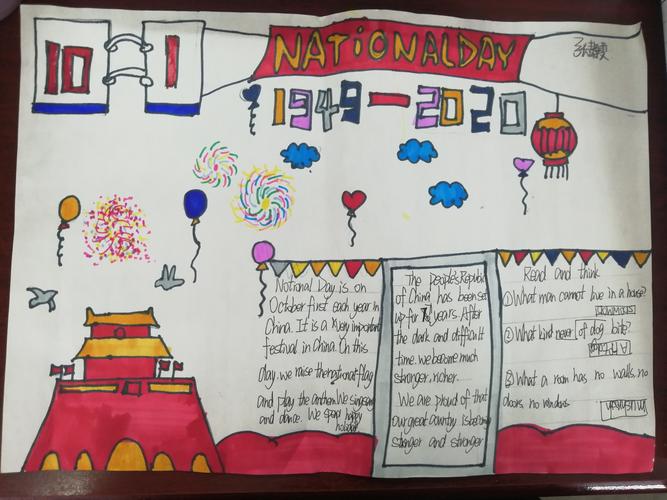 10 1
NATiONALDAY
1949—2020
National Day is on
October first each year in
China. It is a very important
festival in China. On this
day, we raise the national flag
and play the anthem. We sing song
and dance. We spend happy
holiday
The people's Republic
of China has been set
up for 71 years. After
the dark and difficult
time. we become much
stronger, richer.
We are proud of that
our great country is
stronger and stronger
Read and think
①What man cannot live in a house?
SNOWMAN
②What kind never of dog bite?
③What a room has no walls. no
doors. no windows
MUSHROOM